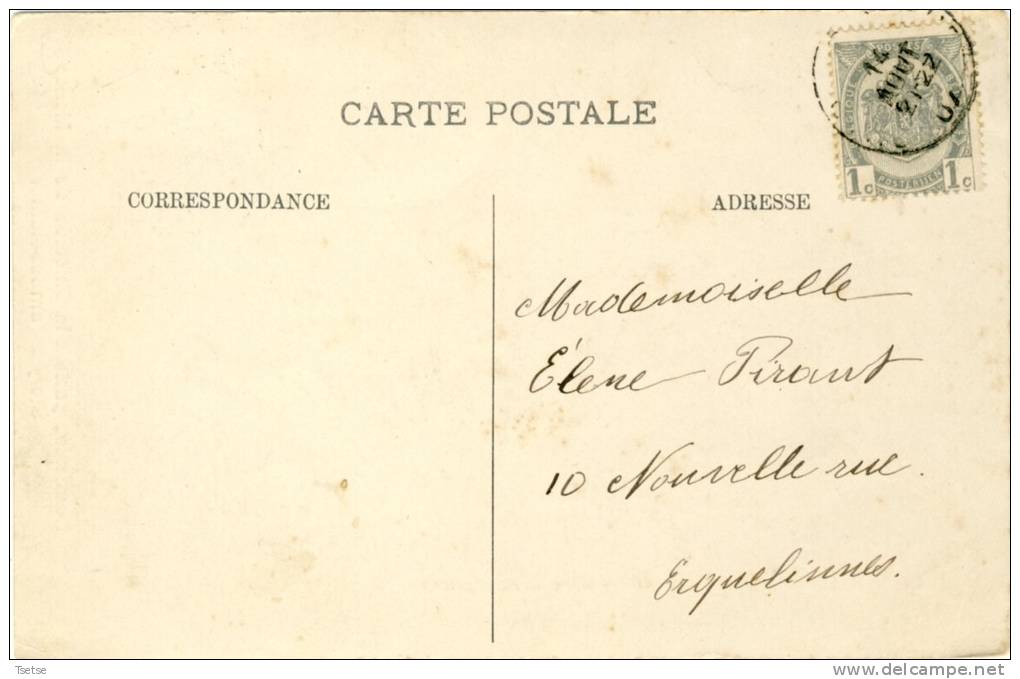 CARTE POSTALE
CORRESPONDANCE
ADRESSE
POSTES
14
AOUT
21-22
1c 1c
POSTERIJEN
Mademoiselle
Élene Pirant
10 Nouvelle rue.
Erquelinnes.
Tsetse
www.delcampe.net